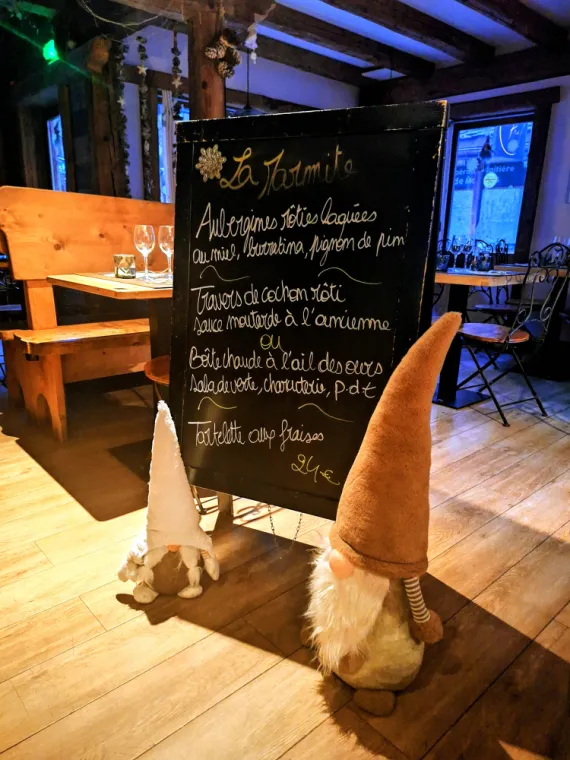 La Marmite
Aubergines rôties laquées
au miel, burratina, pignon de pin
Travers de cochon rôti
sauce moutarde à l'ancienne
ou
Boîte chaude à l'ail des ours
salade verte, charcuterie, p.d.t
Tartelette aux fraises
24€